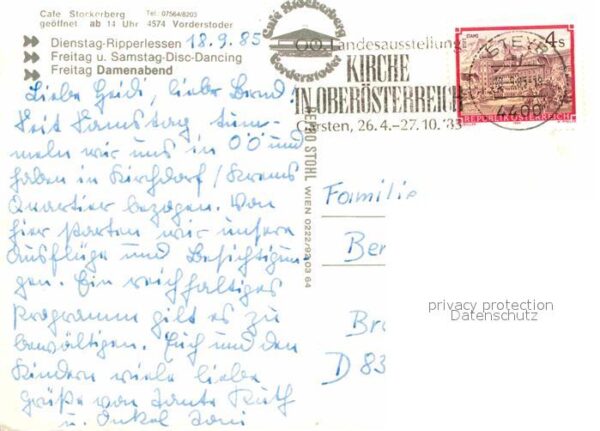 Cafe Storkerberg Tel. 07564/8203
geöffnet ab 14 Uhr 4574 Vorderstoder
Dienstag-Ripperlessen 18.9.85
Freitag u. Samstag-Disc-Dancing
Freitag Damenabend
Liebe Heidi, lieber Bernd!
Seit Samstag tum-
meln wir uns in OÖ und
haben in Kirchdorf/Krems
Quartier bezogen. Von
hier starten wir unsere
Ausflüge und Besichtigun-
gen. Ein reichhaltiges
Programm gilt es zu
bewältigen. Euch und den
Kindern viele liebe
Grüße von Tante Ruth
u. Onkel Toni
Cafe Storkerberg
Vorderstoder
OÖ. Landesausstellung
KIRCHE
IN OBERÖSTERREICH
Garsten, 26.4.-27.10.'85
STEYR
4400
4 S
REPUBLIK ÖSTERREICH
STOHL WIEN 0222/92 03 64
Familie
Ber
Br
D 83
privacy protection
Datenschutz